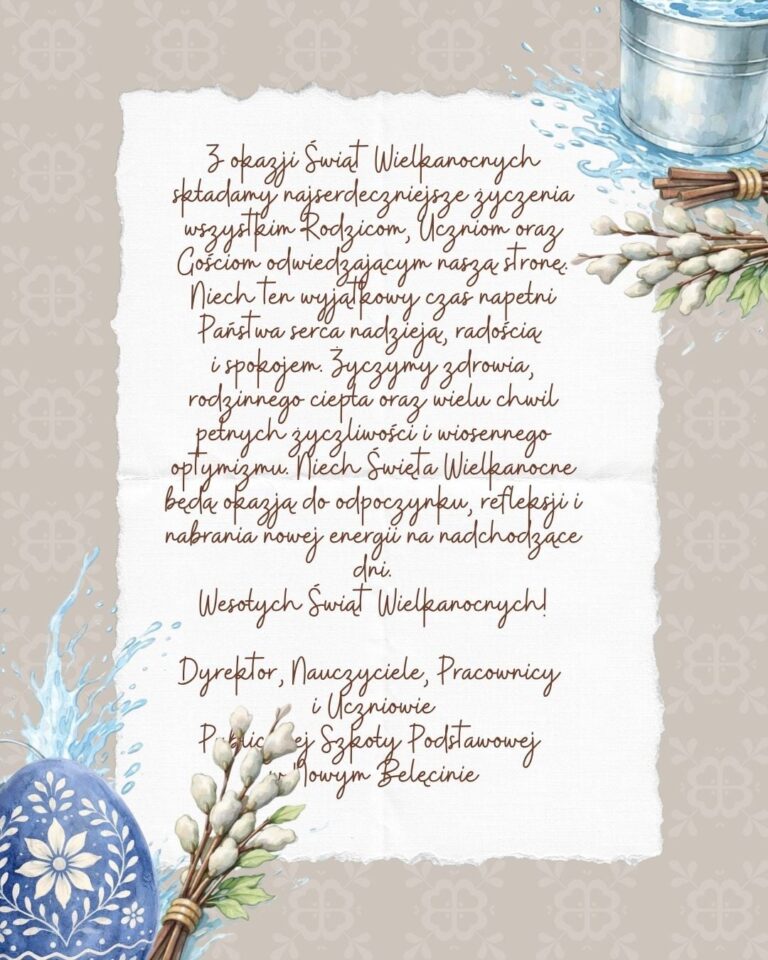 Z okazji Świąt Wielkanocnych
składamy najserdeczniejsze życzenia
wszystkim Rodzicom, Uczniom oraz
Gościom odwiedzającym naszą stronę.
Niech ten wyjątkowy czas napełni
Państwa serca nadzieją, radością
i spokojem. Życzymy zdrowia,
rodzinnego ciepła oraz wielu chwil
pełnych życzliwości i wiosennego
optymizmu. Niech Święta Wielkanocne
będą okazją do odpoczynku, refleksji i
nabrania nowej energii na nadchodzące
dni.
Wesołych Świąt Wielkanocnych!
Dyrektor, Nauczyciele, Pracownicy
i Uczniowie
Szkoły Podstawowej
w Nowym Belęcinie